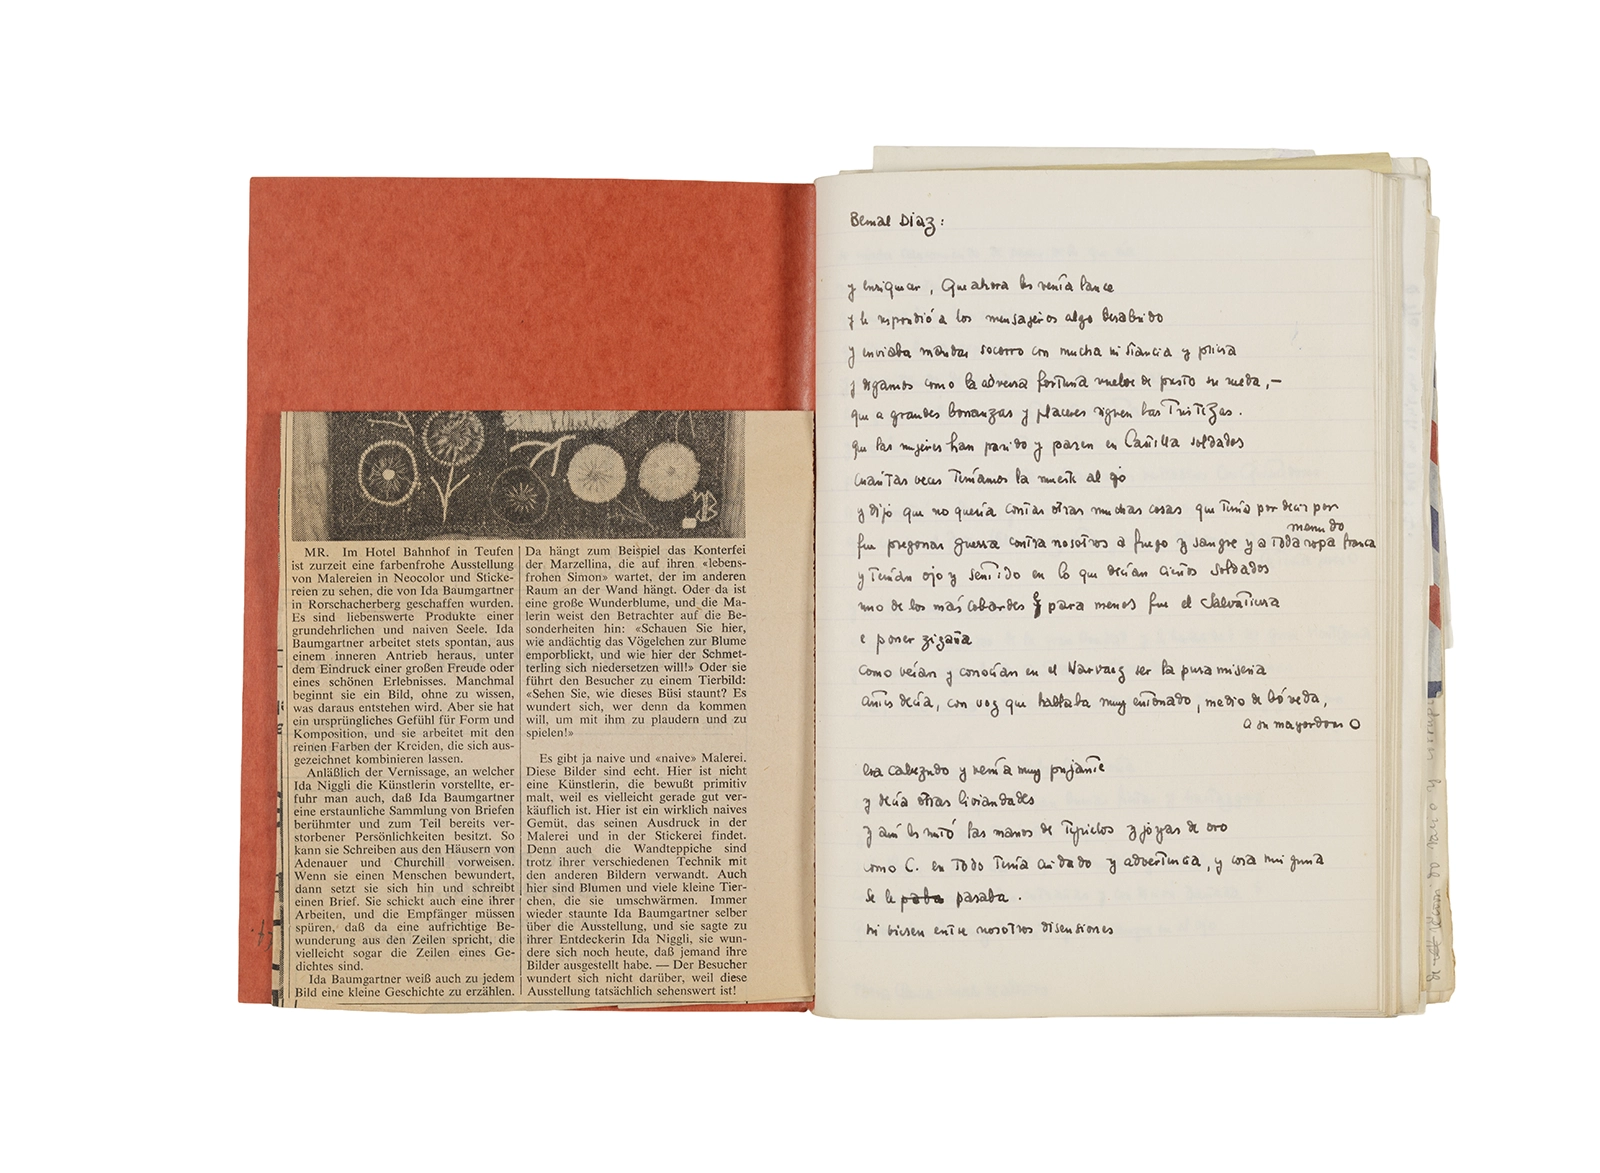 MR. Im Hotel Bahnhof in Teufen
ist zurzeit eine farbenfrohe Ausstellung
von Malereien in Neocolor und Sticke-
reien zu sehen, die von Ida Baumgartner
in Rorschacherberg geschaffen wurden.
Es sind liebenswerte Produkte einer
grundehrlichen und naiven Seele. Ida
Baumgartner arbeitet stets spontan, aus
einem inneren Antrieb heraus, unter
dem Eindruck einer großen Freude oder
eines schönen Erlebnisses. Manchmal
beginnt sie ein Bild, ohne zu wissen,
was daraus entstehen wird. Aber sie hat
ein ursprüngliches Gefühl für Form und
Komposition, und sie arbeitet mit den
reinen Farben der Kreiden, die sich aus-
gezeichnet kombinieren lassen.
Anläßlich der Vernissage, an welcher
Ida Niggli die Künstlerin vorstellte, er-
fuhr man auch, daß Ida Baumgartner
eine erstaunliche Sammlung von Briefen
berühmter und zum Teil bereits ver-
storbener Persönlichkeiten besitzt. So
kann sie Schreiben aus den Häusern von
Adenauer und Churchill vorweisen.
Wenn sie einen Menschen bewundert,
dann setzt sie sich hin und schreibt
einen Brief. Sie schickt auch eine ihrer
Arbeiten, und die Empfänger müssen
spüren, daß da eine aufrichtige Be-
wunderung aus den Zeilen spricht, die
vielleicht sogar die Zeilen eines Ge-
dichtes sind.
Ida Baumgartner weiß auch zu jedem
Bild eine kleine Geschichte zu erzählen.
Da hängt zum Beispiel das Konterfei
der Marzellina, die auf ihren «lebens-
frohen Simon» wartet, der im anderen
Raum an der Wand hängt. Oder da ist
eine große Wunderblume, und die Ma-
lerin weist den Betrachter auf die Be-
sonderheiten hin: «Schauen Sie hier,
wie andächtig das Vögelchen zur Blume
emporblickt, und wie hier der Schmet-
terling sich niedersetzen will!» Oder sie
führt den Besucher zu einem Tierbild:
«Sehen Sie, wie dieses Büsi staunt? Es
wundert sich, wer denn da kommen
will, um mit ihm zu plaudern und zu
spielen!»
Es gibt ja naive und «naive» Malerei.
Diese Bilder sind echt. Hier ist nicht
eine Künstlerin, die bewußt primitiv
malt, weil es vielleicht gerade gut ver-
käuflich ist. Hier ist ein wirklich naives
Gemüt, das seinen Ausdruck in der
Malerei und in der Stickerei findet.
Denn auch die Wandteppiche sind
trotz ihrer verschiedenen Technik mit
den anderen Bildern verwandt. Auch
hier sind Blumen und viele kleine Tier-
chen, die sie umschwärmen. Immer
wieder staunte Ida Baumgartner selber
über die Ausstellung, und sie sagte zu
ihrer Entdeckerin Ida Niggli, sie wun-
dere sich noch heute, daß jemand ihre
Bilder ausgestellt habe. — Der Besucher
wundert sich nicht darüber, weil diese
Ausstellung tatsächlich sehenswert ist!
Bernal Diaz:
y enriquecer, Que ahora les venía lance
y le respondió a los mensajeros algo desabrido
y enviaba mandar socorro con mucha instancia y priesa
y digamos como la adversa fortuna vuelve de presto su rueda,—
que a grandes bonanzas y placeres siguen las Tristezas.
que las mujeres han parido y paren en Castilla soldados
cuantas veces Teníamos la muerte al ojo
y dijo que no quería contar otras muchas cosas que tenía por decir por
menudo
fue pregonar guerra contra nosotros a fuego y sangre y a toda ropa franca
y Tenían ojo y sentido en lo que decían ciertos soldados
uno de los más cobardes para menos fue el Salvatierra
e poner zizaña
como veían y conocían en el Narvaez ser la pura miseria
antes decía, con voz que hablaba muy entonado, medio de bóveda,
a su mayordomo
era cabezudo y venía muy pujante
y decía otras liviandades
y aun les untó las manos de Tejuelos y joyas de oro
como C. en Todo Tenía cuidado y advertencia, y cosa ninguna
se le paba pasaba.
ni viesen entre nosotros disensiones